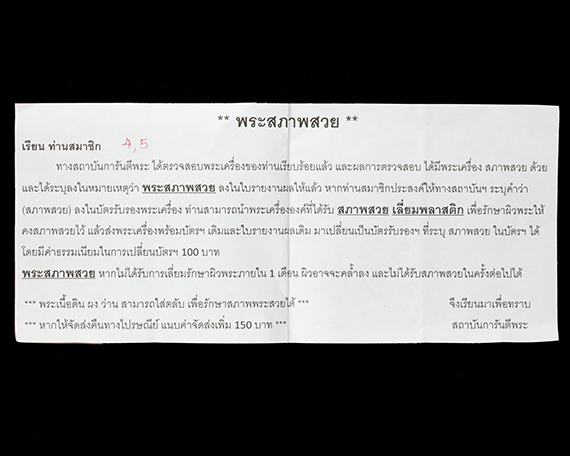 ** พระสภาพสวย **
เรียน ท่านสมาชิก 4,5
ทางสถาบันการันตีพระ ได้ตรวจสอบพระเครื่องของท่านเรียบร้อยแล้ว และผลการตรวจสอบ ได้มีพระเครื่อง สภาพสวย ด้วย
และได้ระบุลงในหมายเหตุว่า พระสภาพสวย ลงในใบรายงานผลให้แล้ว หากท่านสมาชิกประสงค์ให้ทางสถาบันฯ ระบุคำว่า
(สภาพสวย) ลงในบัตรรับรองพระเครื่อง ท่านสามารถนำพระเครื่ององค์ที่ได้รับ สภาพสวย เลี่ยมพลาสติก เพื่อรักษาผิวพระให้
คงสภาพสวยไว้ แล้วส่งพระเครื่องพร้อมบัตรฯ เดิมและใบรายงานผลเดิม มาเปลี่ยนเป็นบัตรรับรองฯ ที่ระบุ สภาพสวย ในบัตรฯ ได้
โดยมีค่าธรรมเนียมในการเปลี่ยนบัตรฯ 100 บาท
พระสภาพสวย หากไม่ได้รับการเลี่ยมรักษาผิวพระภายใน 1 เดือน ผิวอาจจะคล้ำลง และไม่ได้รับสภาพสวยในครั้งต่อไปได้
*** พระเนื้อดิน ผง ว่าน สามารถใส่ตลับ เพื่อรักษาสภาพพระสวยได้ *** จึงเรียนมาเพื่อทราบ
*** หากให้จัดส่งคืนทางไปรษณีย์ แนบค่าจัดส่งเพิ่ม 150 บาท *** สถาบันการันตีพระ